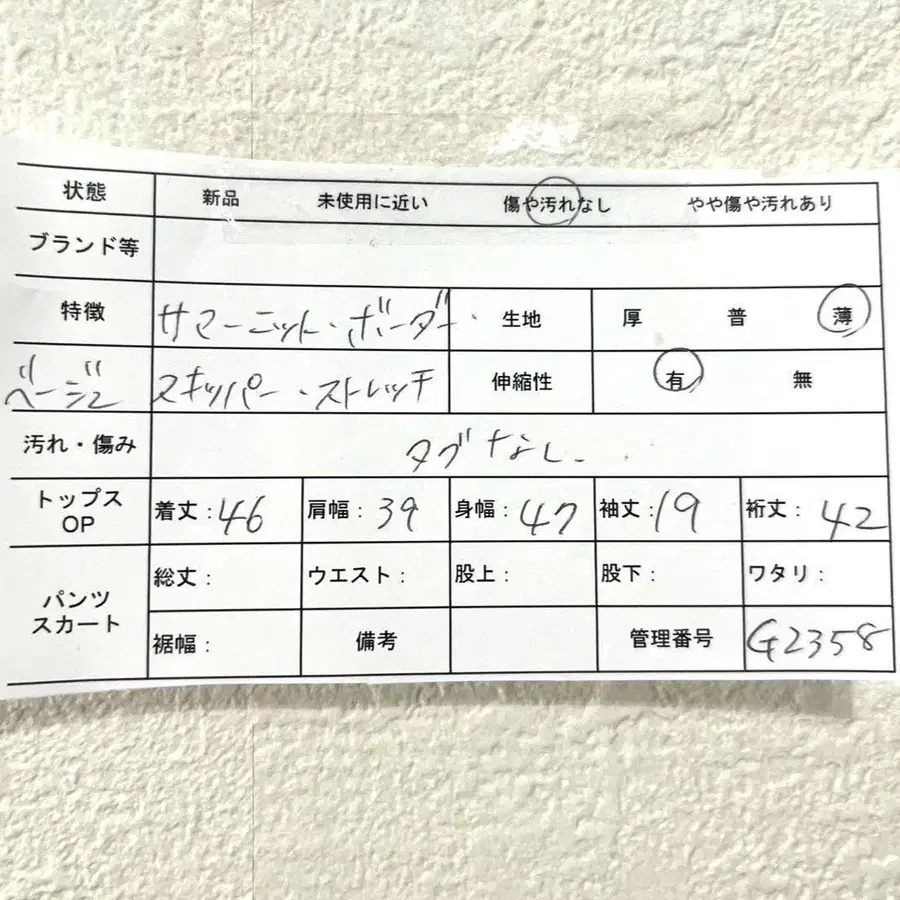 状態 新品 未使用に近い 傷や汚れなし やや傷や汚れあり
ブランド等
特徴 サマーニット・ボーダー・ 生地 厚 普 薄
ベージュ スキッパー・ストレッチ 伸縮性 有 無
汚れ・傷み タグなし
トップス OP 着丈:46 肩幅:39 身幅:47 袖丈:19 裄丈:42
パンツ スカート 総丈: ウエスト: 股上: 股下: ワタリ:
裾幅: 備考 管理番号 G2358